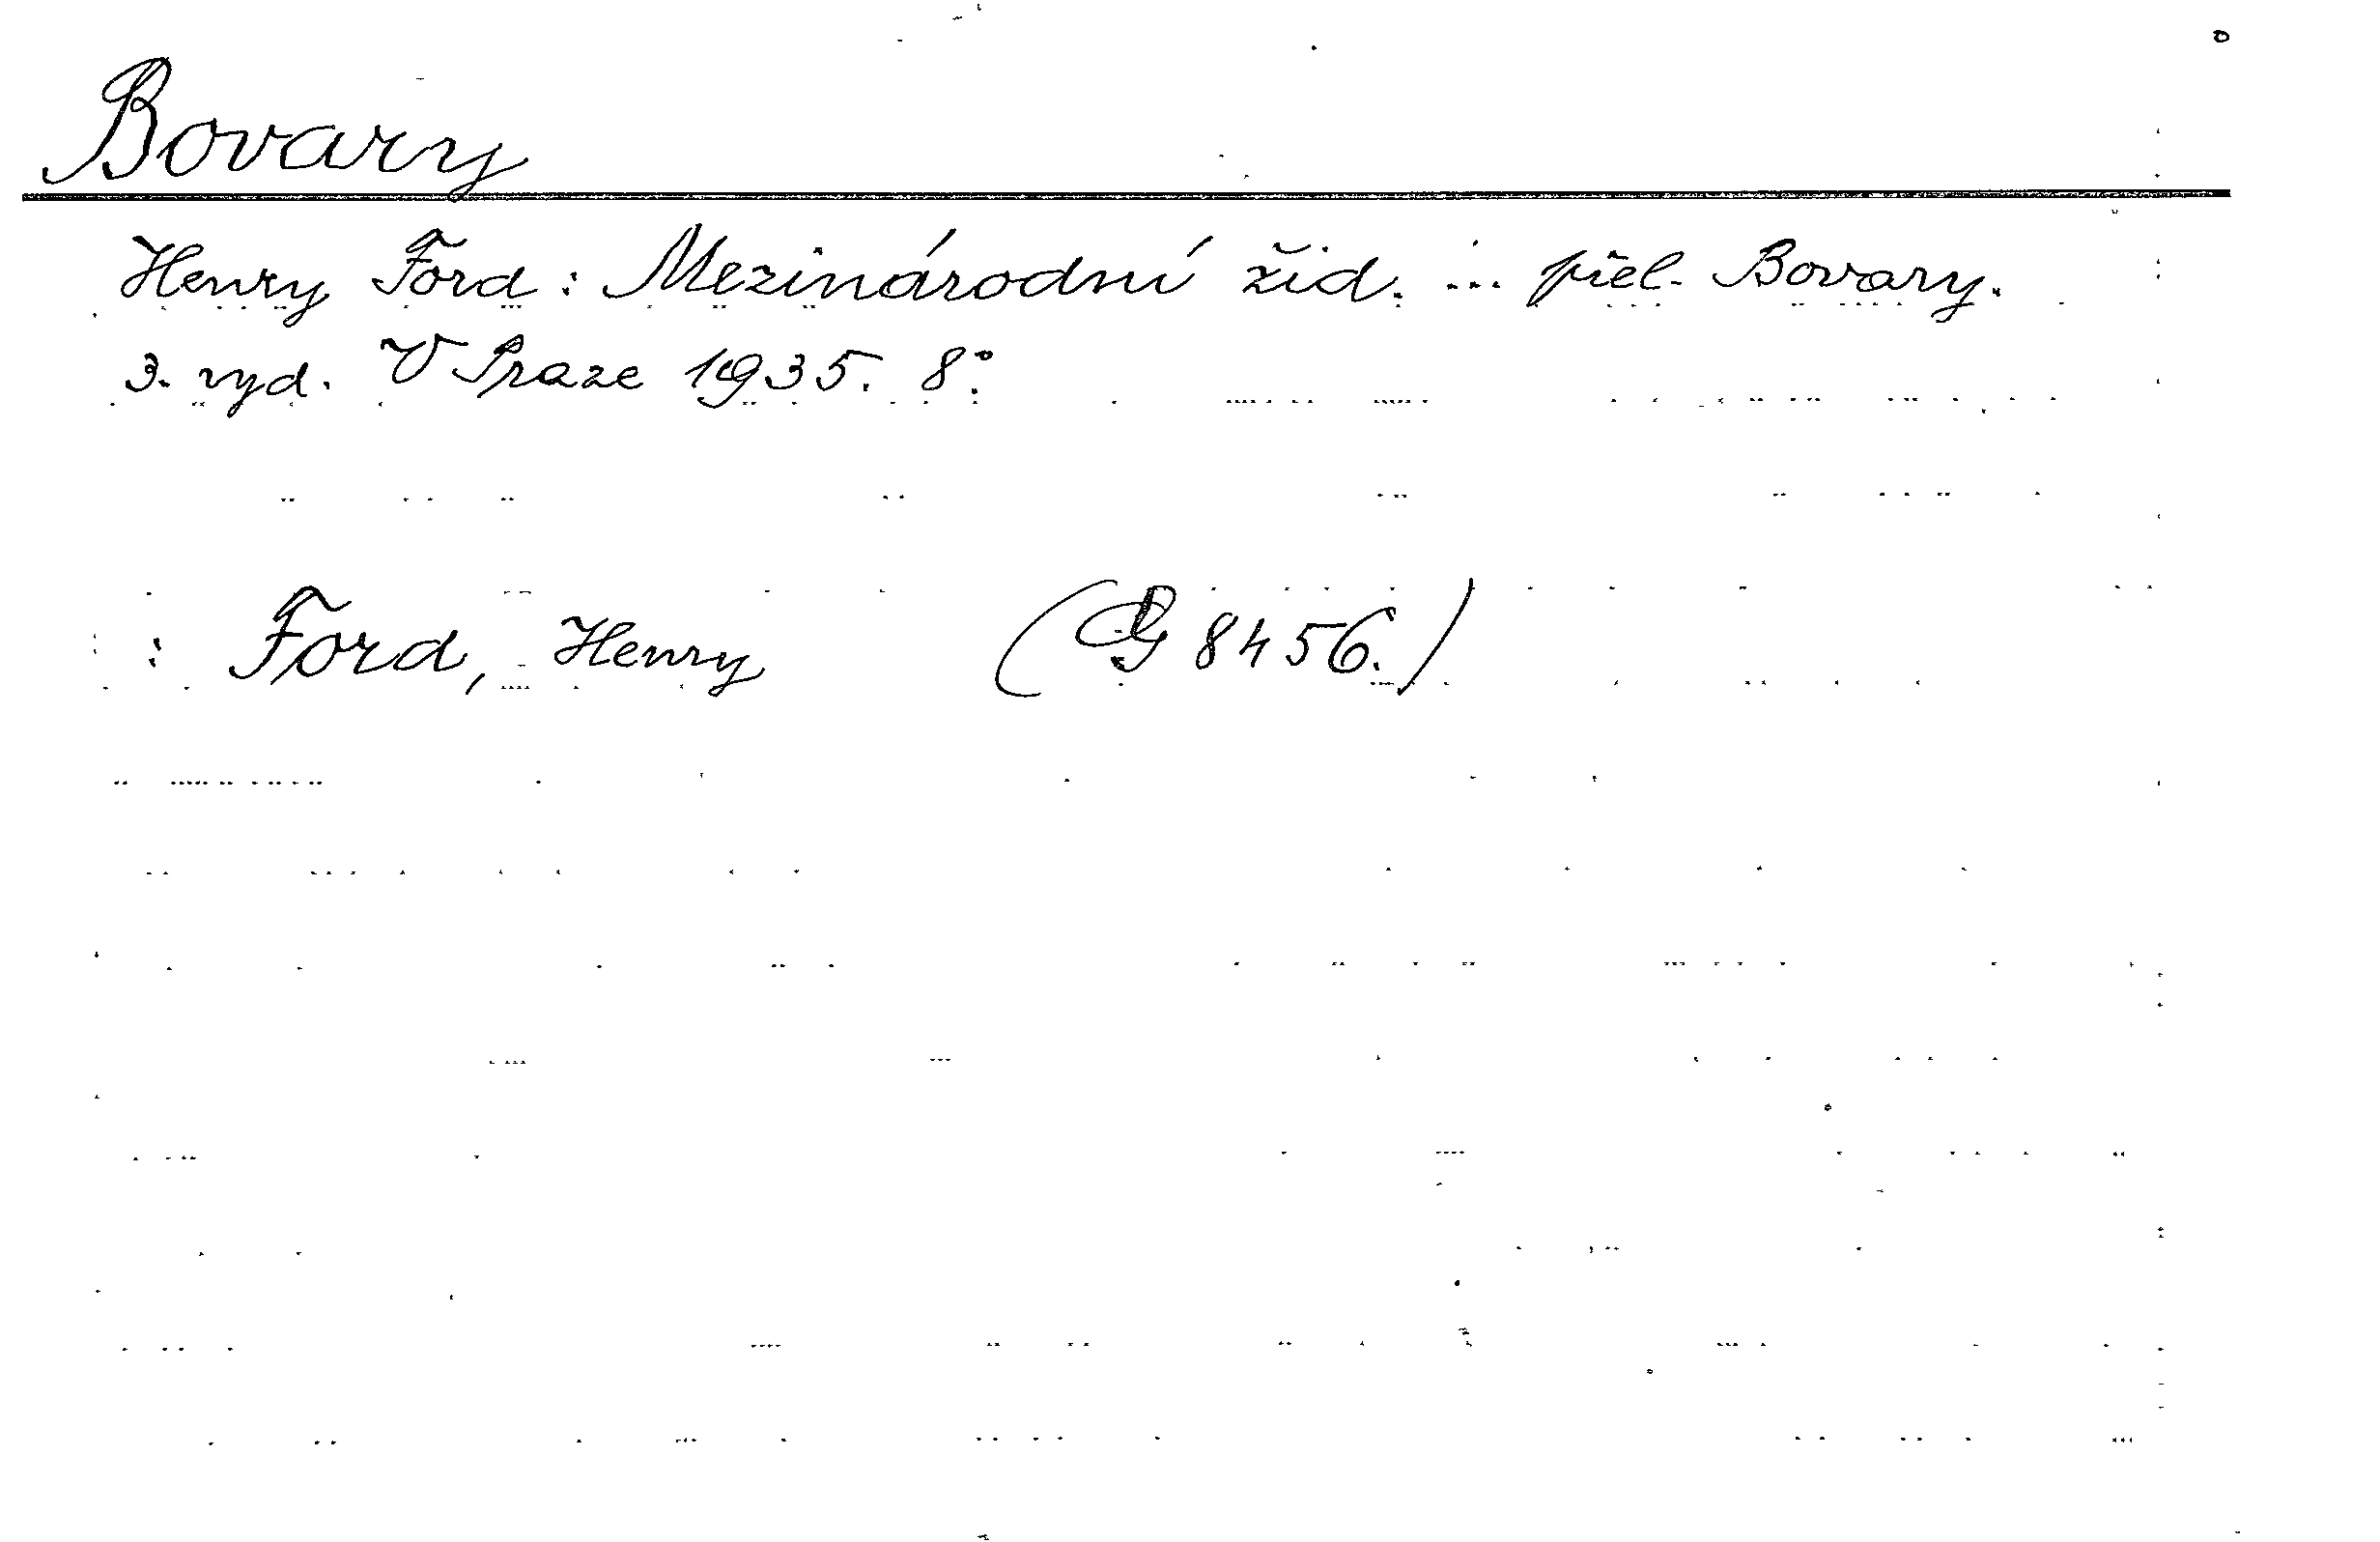 Bovary
Henry Ford: Mezinárodní žid. ... přel. Bovary.
3. vyd. V Praze 1935. 8°.
: Ford, Henry (G 8456.)